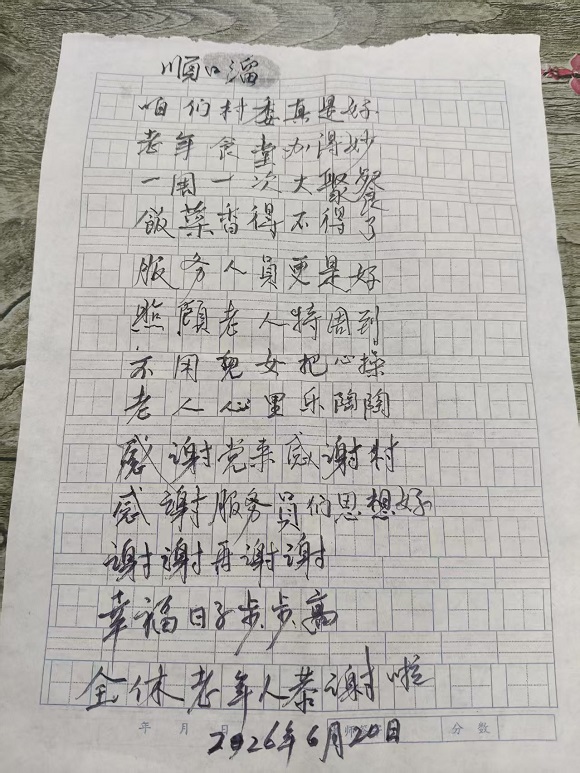 順口溜
咱们村委真是好
老年食堂办得妙
一周一次大聚餐
飯菜香得不得了
服务人員更是好
照顧老人特周到
不用兒女把心操
老人心里乐陶陶
感谢党来感谢村
感謝服务員们思想好
谢谢再谢谢
幸福日子步步高
全休老年人恭谢啦
年 月 日
分数
2026年6月20日